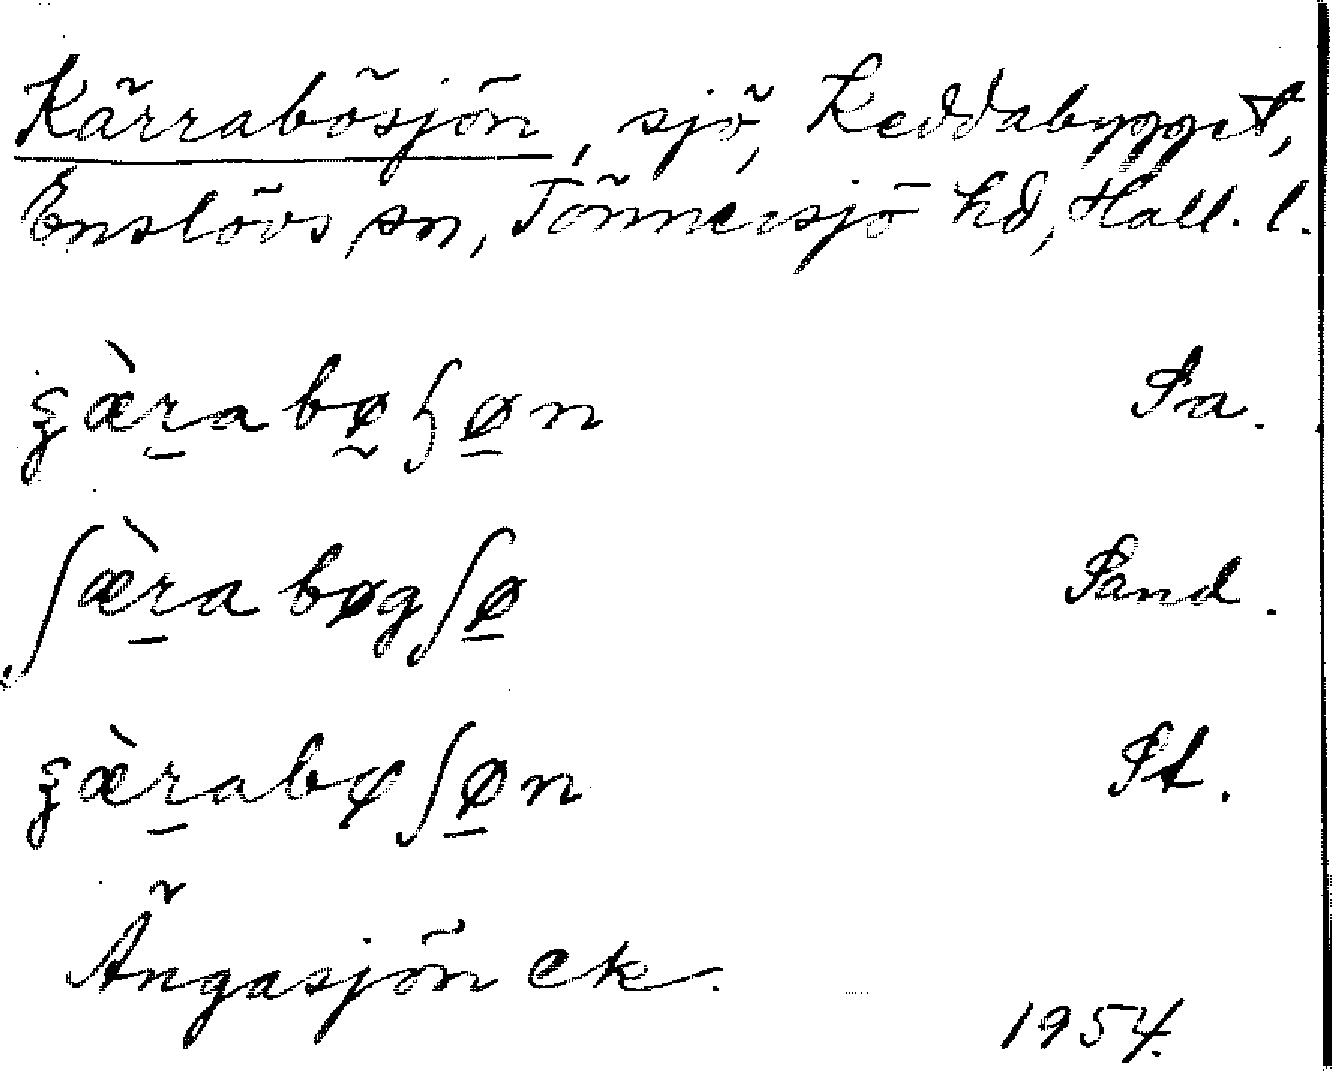 Kärrabösjön, sjö, Keddabygget,
Enslövs sn, Tönnersjö hd, Hall. l.
ʓæ̀r̲abø̰ɧø̲n Pa.
ʃæ̀r̲abøgʃø̲ Pand.
ʓæ̀r̲abøʃø̲n Pt.
Ängasjön ek.
1954.